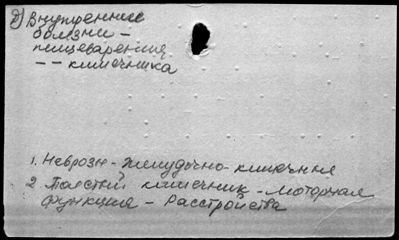 2) Внутренние
болезни -
пищеварения
-- кишечника
1. Неврозы - желудочно-кишечные
2 Толстый кишечник - Моторная
функция - Расстройства